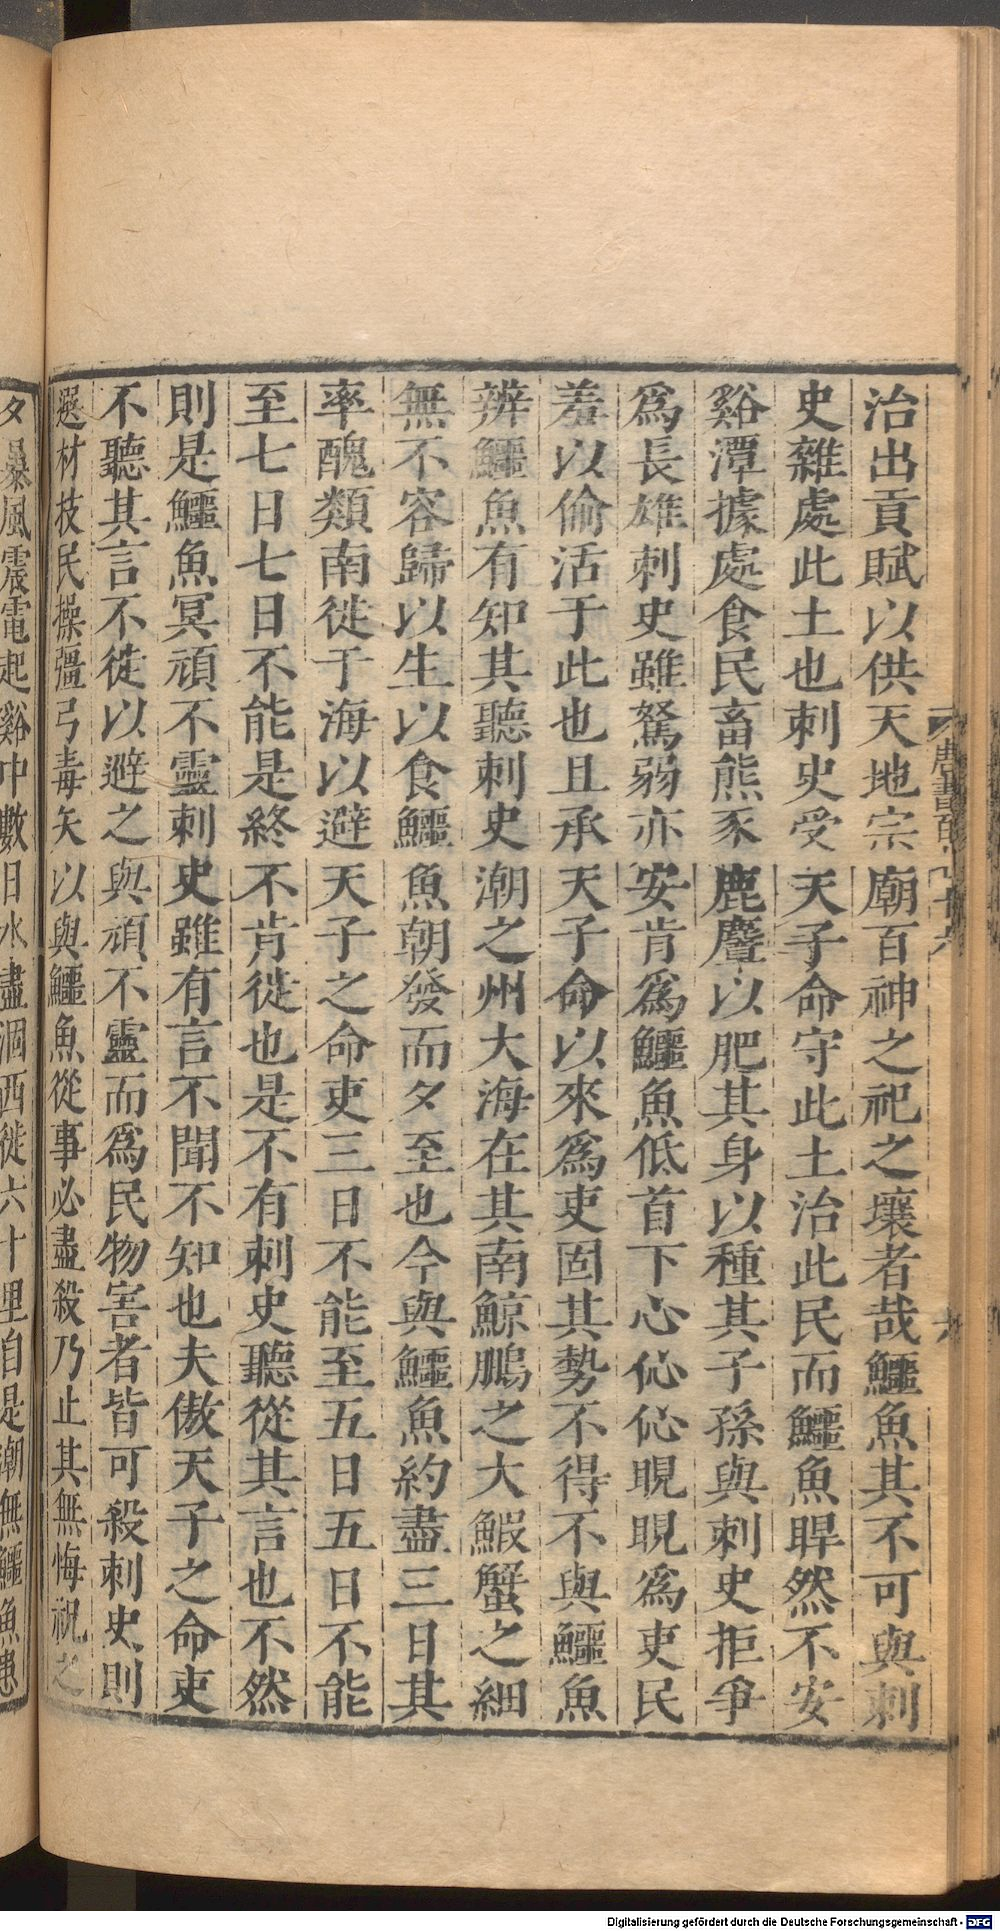 治出貢賦以供天地宗廟百神之祀之壤者哉鱷魚其不可與刺
史雜處此土也刺史受天子命守此土治此民而鱷魚睅然不安
谿潭據處食民畜熊豕鹿麞以肥其身以種其子孫與刺史拒爭
爲長雄刺史雖駑弱亦安肯爲鱷魚低首下心伈伈睍睍爲吏民
羞以偷活于此也且承天子命以來爲吏固其勢不得不與鱷魚
辨鱷魚有知其聽刺史潮之州大海在其南鯨鵬之大鰕蟹之細
無不容歸以生以食鱷魚朝發而夕至也今與鱷魚約盡三日其
率醜類南徙于海以避天子之命吏三日不能至五日五日不能
至七日七日不能是終不肯徙也是不有刺史聽從其言也不然
則是鱷魚冥頑不靈刺史雖有言不聞不知也夫傲天子之命吏
不聽其言不徙以避之與頑不靈而爲民物害者皆可殺刺史則
選材技民操彊弓毒矢以與鱷魚從事必盡殺乃止其無悔祝之
夕暴風震電起谿中數日水盡涸西徙六十里自是潮無鱷魚患
唐書百六
六
Digitalisierung gefördert durch die Deutsche Forschungsgemeinschaft - DFG